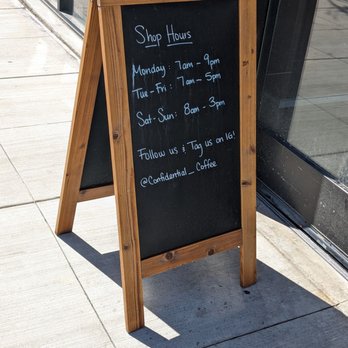 Shop Hours
Monday: 7am - 9pm
Tue-Fri: 7am - 5pm
Sat-Sun: 8am - 3pm
Follow us & Tag us on IG!
@Confidential_Coffee